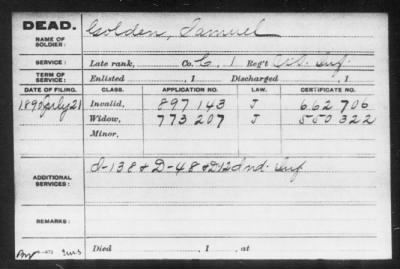 DEAD.
NAME OF SOLDIER: Golden, Samuel
SERVICE: Late rank, Co. C, 1 Reg't U.S. Inf.
TERM OF SERVICE: Enlisted , 1 Discharged , 1
DATE OF FILING. CLASS. APPLICATION NO. LAW. CERTIFICATE NO.
1890 July 21 Invalid, 897 143 J 662 706
Widow, 773 207 J 550 322
Minor,
ADDITIONAL SERVICES: I-138 & D-48 & D 12 Ind. Inf
REMARKS:
Died , 1 , at